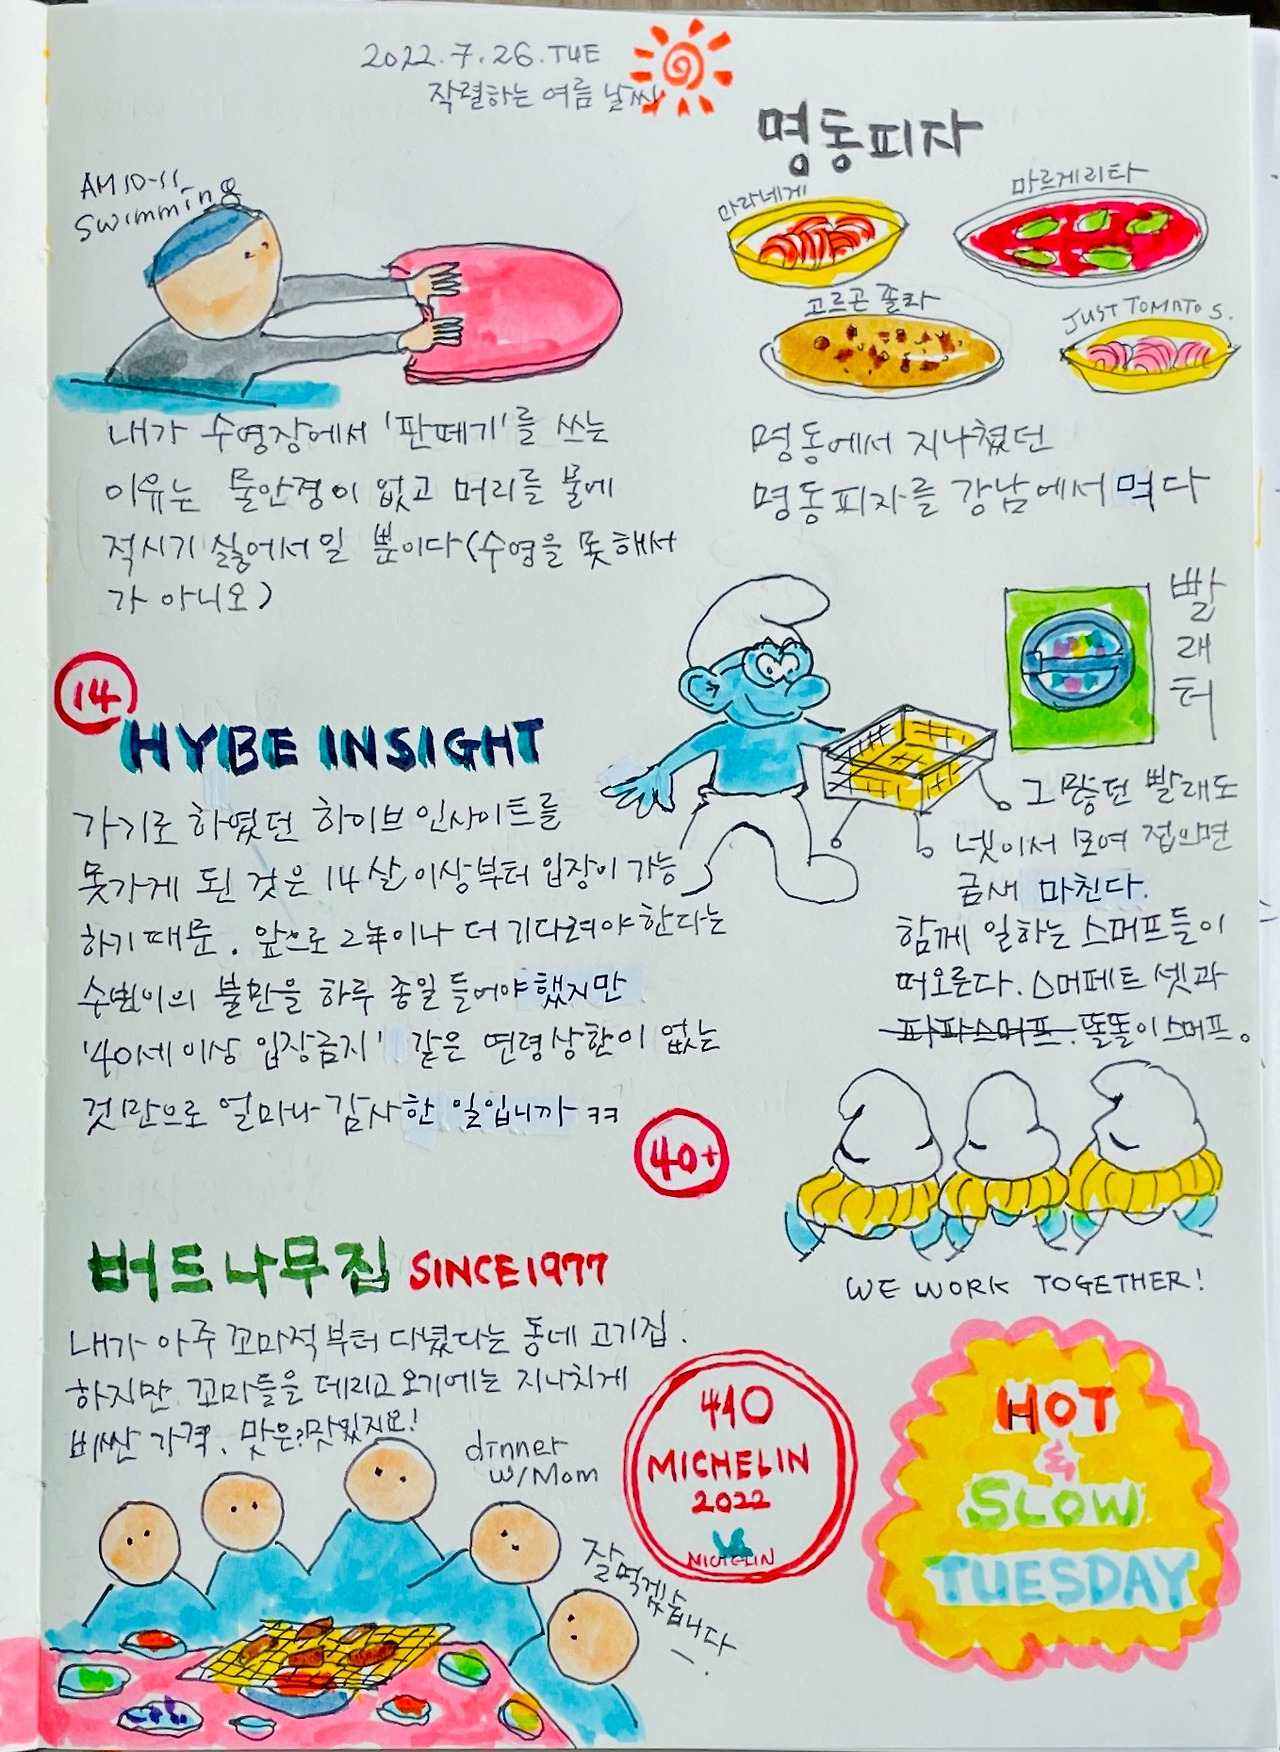 2022.7.26.TUE
작렬하는 여름 날씨
AM10-11
swimming
내가 수영장에서 '판떼기'를 쓰는
이유는 물안경이 없고 머리를 물에
적시기 싫어서일 뿐이다(수영을 못해서
가 아니오)
명동피자
마라네게
마르게리타
고르곤졸라
JUST TOMATO S.
명동에서 지나쳤던
명동피자를 강남에서 먹다
14
HYBE INSIGHT
가기로 하였던 하이브 인사이트를
못가게 된 것은 14살 이상부터 입장이 가능
하기 때문. 앞으로 2년이나 더 기다려야 한다는
수빈이의 불만을 하루 종일 들어야 했지만
'40세 이상 입장금지' 같은 연령상한이 없는
것만으로 얼마나 감사한 일입니까 ㅋㅋ
40+
빨래터
그 많던 빨래도
넷이서 모여 접으면
금새 마친다.
함께 일하는 스머프들이
떠오른다. 스머페트 셋과
파파스머프. 똘똘이 스머프.
WE WORK TOGETHER!
버드나무집 SINCE1977
내가 아주 꼬마적부터 다녔다는 동네 고기집.
하지만 꼬마들을 데리고 오기에는 지나치게
비싼 가격. 맛은? 맛있지요!
dinner
w/Mom
잘먹겠습니다
MICHELIN
2022
MICHELIN
HOT
&
SLOW
TUESDAY